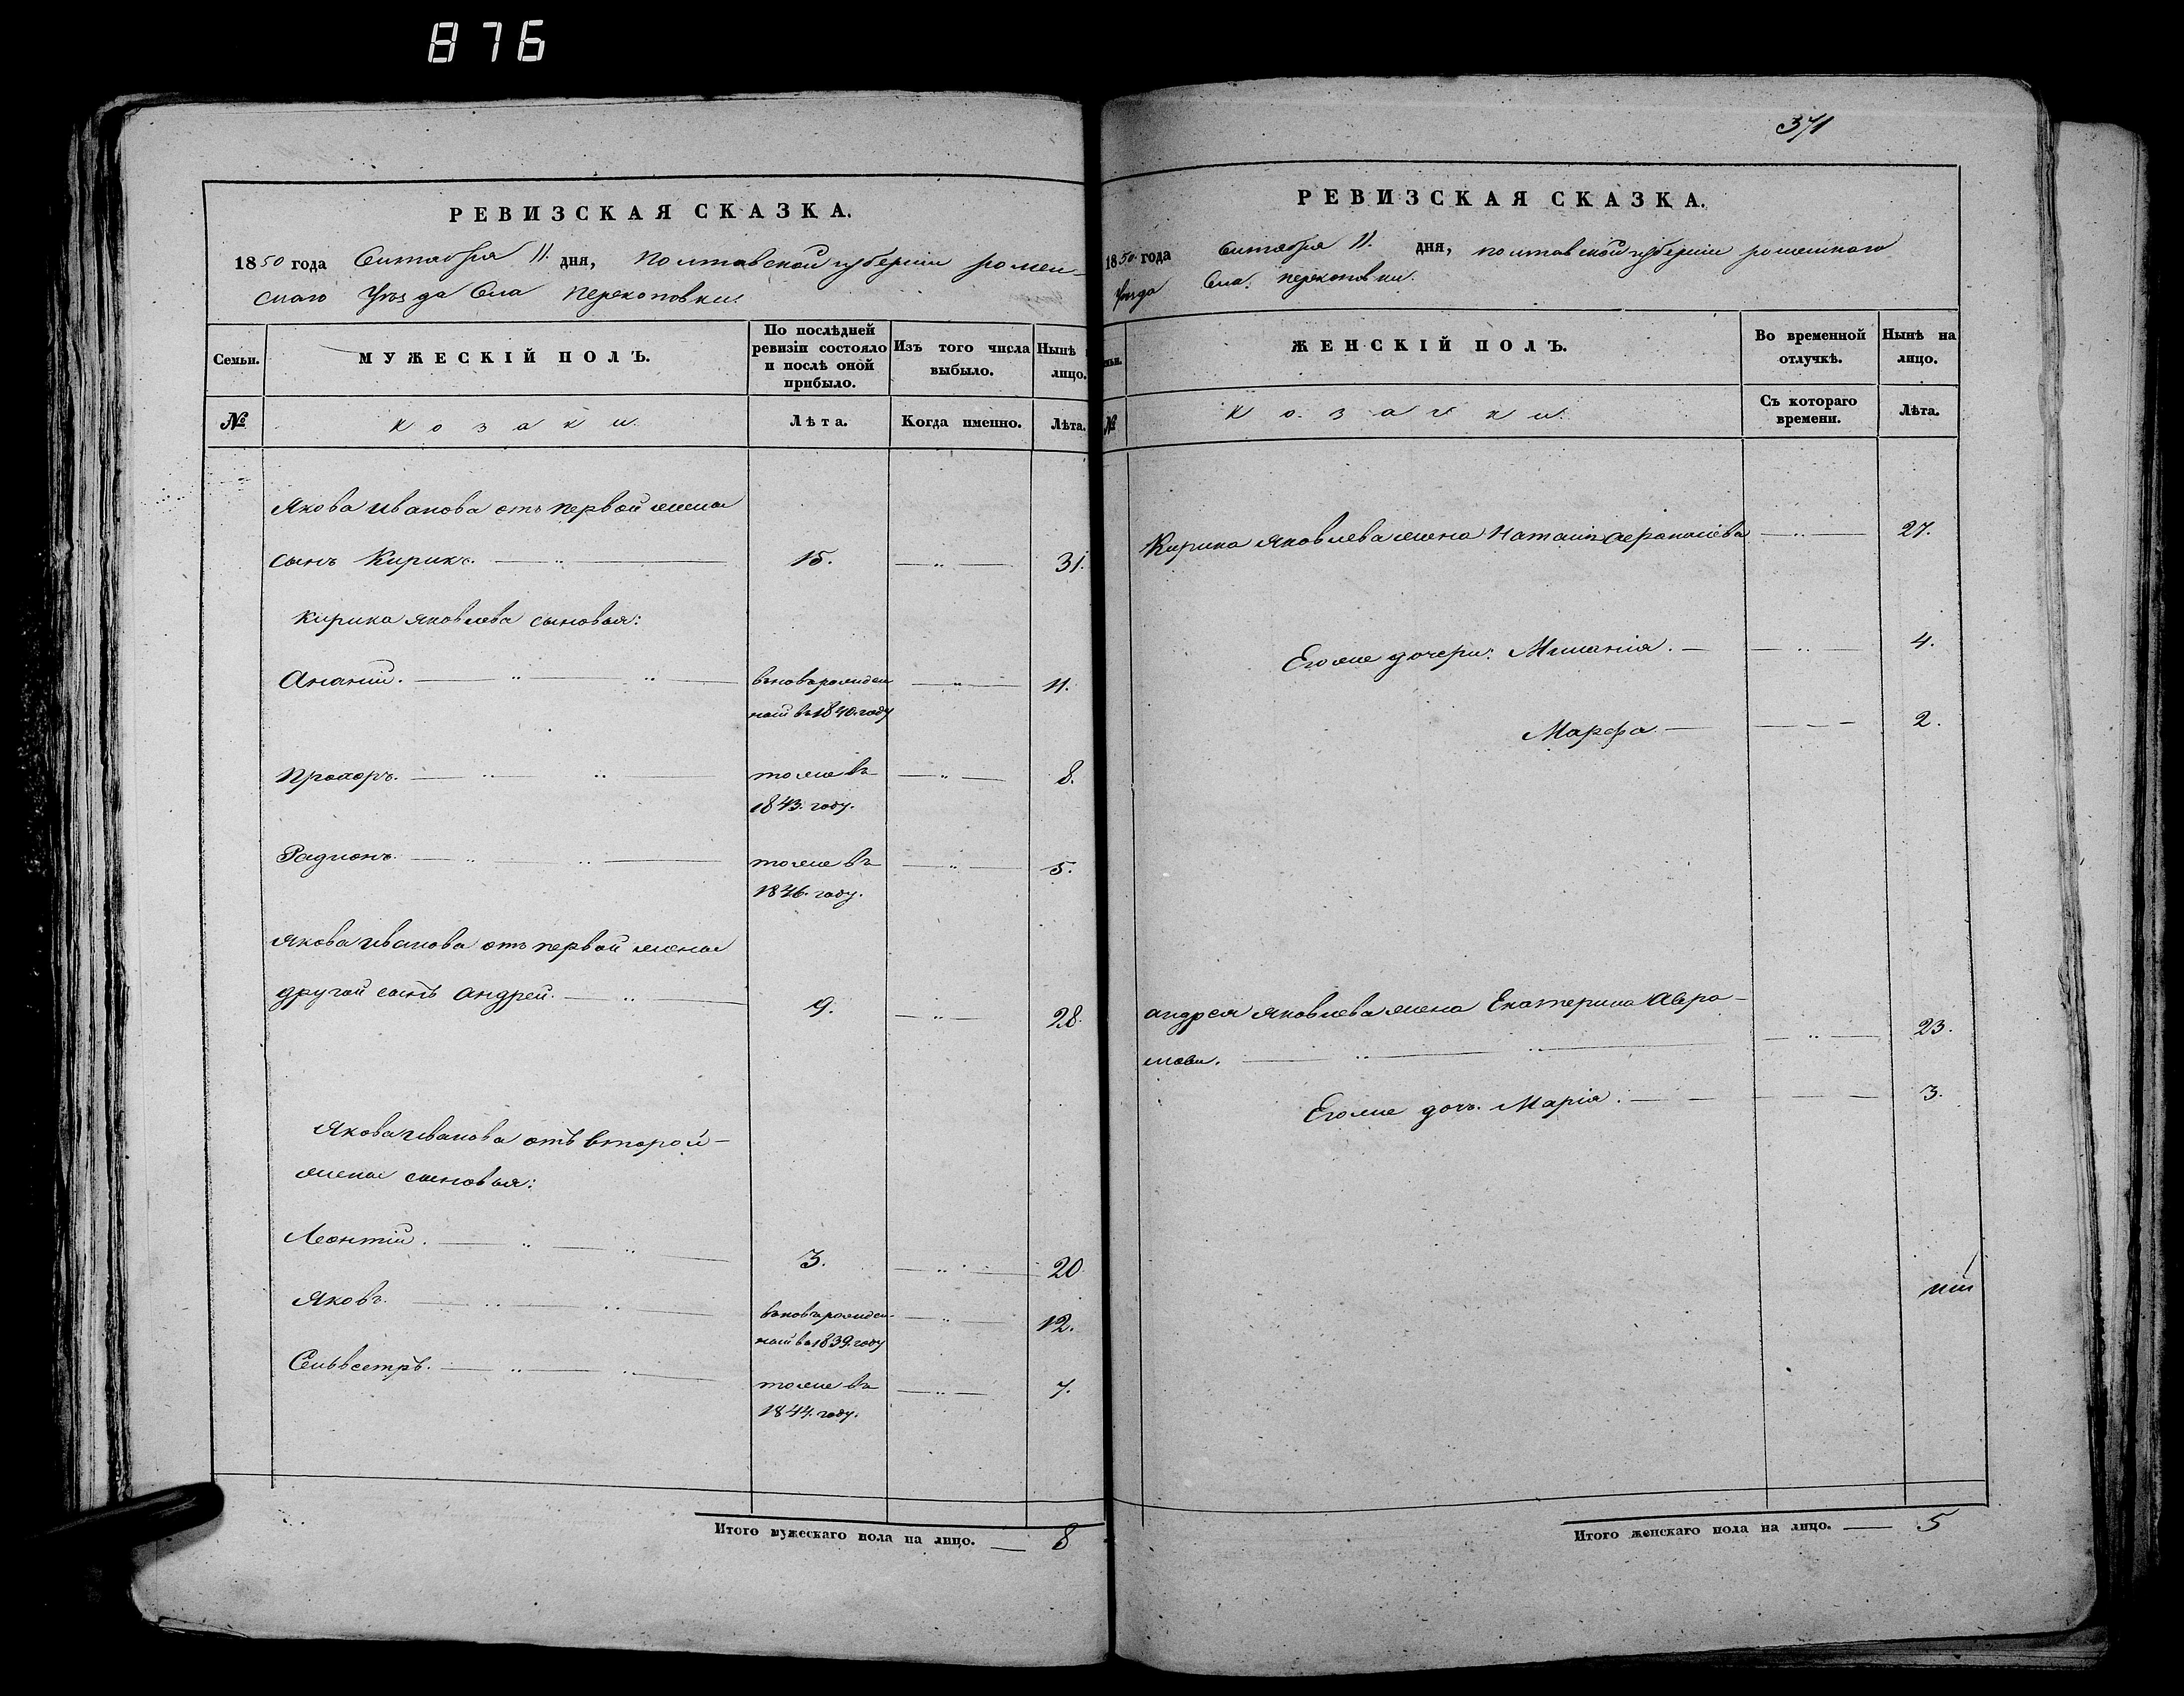 876
РЕВИЗСКАЯ СКАЗКА.
1850 года Сентября 11. дня, Полтавской губернии ромен-
скаго Уѣзда Села Перекоповки.
Семьи.
МУЖЕСКІЙ ПОЛЪ.
По послѣдней
ревизіи состояло
и послѣ оной
прибыло.
Изъ того числа
выбыло.
Нынѣ
лицо.
№
козаки.
Лѣта.
Когда именно.
Лѣта.
Якова Иванова отъ первой жены
сынъ Кирикъ. 15. 31.
Кирика Яковлева сыновья:
Ананій. вновьрожден 11.
ный въ 1840. году
Прохоръ. тоже въ 8.
1843. году.
Радионъ. тоже въ 5.
1846. году.
Якова Иванова отъ первой жены
другой сынъ Андрей. 9. 28.
Якова Иванова отъ второй
жены сыновья:
Леонтій. 3. 20
Яковъ. вновьрожден- 12.
ный въ 1839. году
Сельвестръ. тоже въ 7.
1844. году.
Итого мужескаго пола на лицо. 8
371
РЕВИЗСКАЯ СКАЗКА.
1850 года Сентября 11. дня, полтавской губерніи роменскаго
Уѣзда Села Перекоповки.
№
ЖЕНСКІЙ ПОЛЪ.
Во временной
отлучкѣ.
Нынѣ на
лицо.
козачки.
Съ котораго
времени.
Лѣта.
Кирика Яковлева жена Наталія Афанасіева 27.
Егоже дочери: Меланія. 4.
Марфа 2.
Андрея Яковлева жена Екатерина Авра-
мова. 23.
Егоже дочь Марія. 3.
Итого женскаго пола на лицо. 5